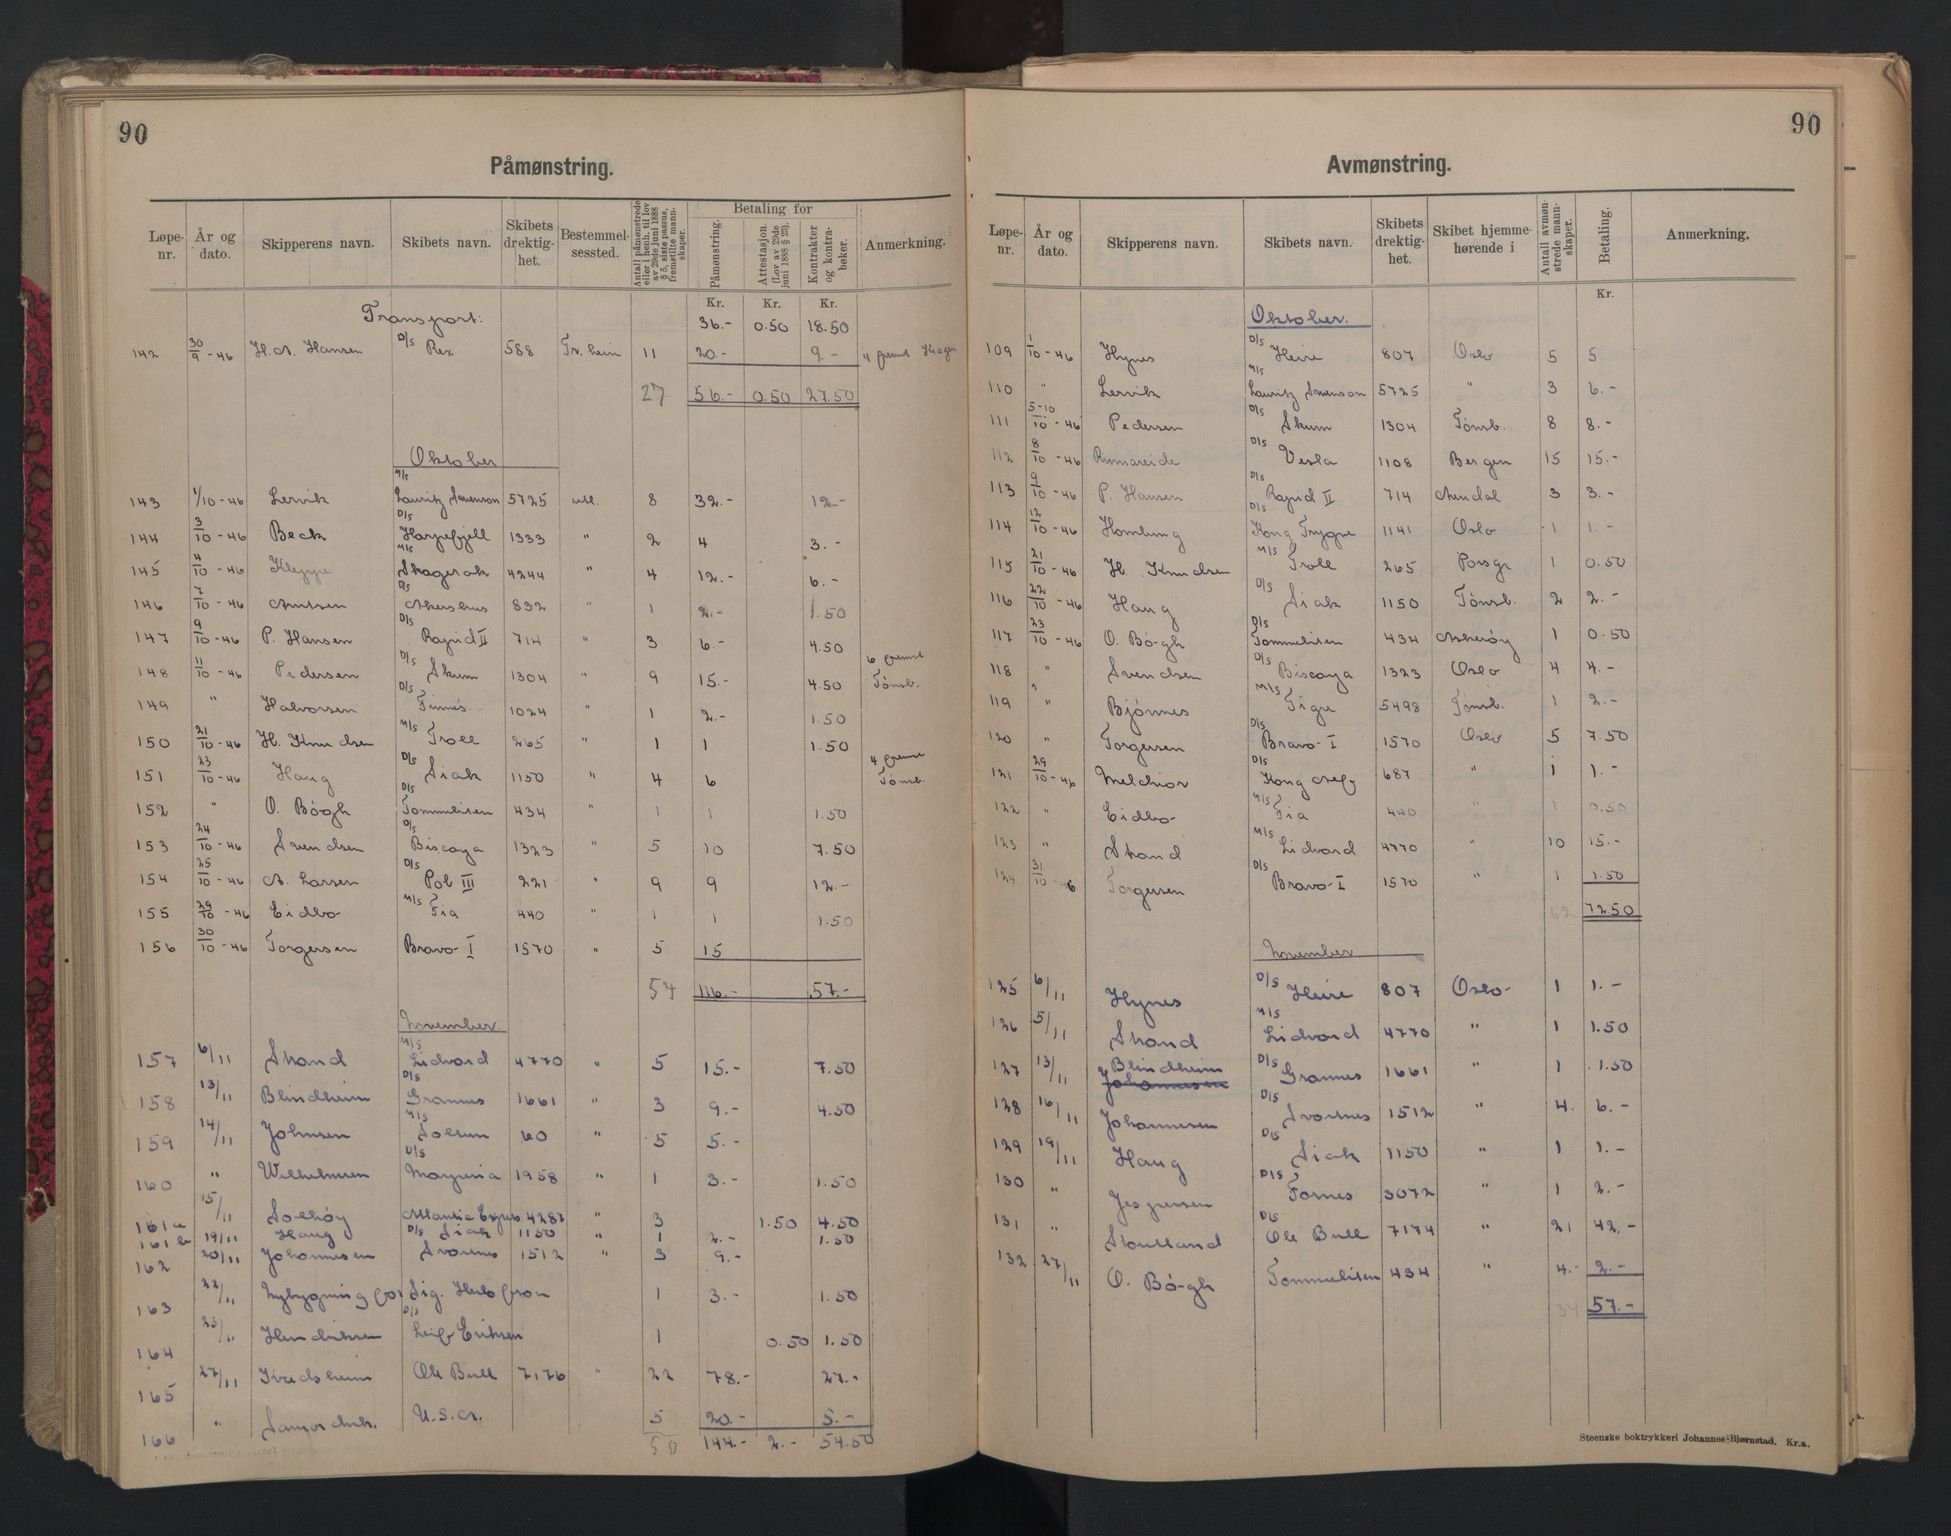 90
Påmønstring.
Løpe-nr. | År og dato. | Skipperens navn. | Skibets navn. | Skibets drektighet. | Bestemmelsessted. | Antall påmønstrede eller i henh. til lov av 29de juni 1888 § 5, siste passus, fremstilte mannskaper. | Betaling for | Påmønstring. | Attestasjon. (Lov av 29de juni 1888 § 23). | Kontrakter og kontrabøker. | Anmerkning.
Kr. Kr. Kr.
Transport: 36.- 0.50 18.50
142 30/9-46 H. A. Hansen D/S Rex 588 Tr.heim 11 20.- 9.- 4 fremst
27 56.- 0.50 27.50
Oktober
143 1/10-46 Lervik M/S Lauritz Svenson 5725 utl. 8 32.- 12.-
144 3/10-46 Beck D/S Harpefjell 1333 " 2 4 3.-
145 4/10-46 Kleppe M/S Skagerak 4244 " 4 12.- 6.-
146 7/10-46 Arntzen D/S Akershus 832 " 1 2.- 1.50
147 9/10-46 P. Hansen D/S Rapid II 714 " 3 6.- 4.50
148 11/10-46 Pedersen D/S Skum 1304 " 9 15.- 4.50 6 fremst Tönsb.
149 " Halvorsen D/S Finnes 1024 " 1 2.- 1.50
150 21/10-46 H. Knudsen M/S Troll 265 " 1 1 1.50
151 23/10-46 Haug D/S Siak 1150 " 4 6 4 fremst Tönsb.
152 " O. Bögh D/S Tommeliten 434 " 1 1 1.50
153 24/10-46 Svendsen D/S Biscaya 1323 " 5 10 7.50
154 25/10-46 A. Larsen D/S Pol III 221 " 9 9 12.-
155 29/10-46 Eidbo M/S Tia 440 " 1 1 1.50
156 30/10-46 Torgersen Bravo-I 1570 " 5 15
54 116.- 57.-
November
157 6/11 Strand M/S Lidvard 4770 " 5 15.- 7.50
158 13/11 Blindheim D/S Grannes 1661 " 3 9.- 4.50
159 14/11 Johnsen M/S Solsun 60 " 5 5.-
160 " Wilhelmsen D/S 1958 " 1 3.- 1.50
161a 15/11 Solhöy Atlantic 4287 " 3 1.50 4.50
161b 19/11 Haug D/S Siak 1150 " 1 2.- 1.50
162 20/11 Johannesen Svartnes 1512 " 3 9.-
163 22/11 Nybygning for Sig. Herlofson 1 3.- 1.50
164 23/11 Hendriksen D/S Leif Eriksen 1 0.50 1.50
165 27/11 Kvedsheim Ole Bull 7176 " 22 78.- 27.-
166 " U.S.A. 5 20.- 5.-
50 144.- 2.- 54.50
90
Avmønstring.
Løpe-nr. | År og dato. | Skipperens navn. | Skibets navn. | Skibets drektighet. | Skibet hjemmehørende i | Antall avmønstrede mannskaper. | Betaling. | Anmerkning.
Kr.
Oktober.
109 1/10-46 Hynes D/S Heire 807 Oslo 5 5
110 " Lervik M/S Lauritz Svenson 5725 " 3 6.-
111 5-10/10-46 Pedersen D/S Skum 1304 Tönsb. 8 8.-
112 8/10-46 Rinnareide D/S Vesla 1108 Bergen 15 15.-
113 9/10-46 P. Hansen D/S Rapid II 714 Arendal 3 3.-
114 12/10-46 Homburg D/S Kong Trygve 1141 Oslo 1 1.-
115 21/10-46 H. Knudsen M/S Troll 265 Porsgr 1 0.50
116 22/10-46 Haug D/S Siak 1150 Tönsb. 2 2.-
117 23/10-46 O. Bögh D/S Tommeliten 434 Askeröy 1 0.50
118 " Svendsen D/S Biscaya 1323 Oslo 4 4.-
119 " Bjönnes M/S Tigre 5498 Tönsb. 1 2.-
120 " Torgersen D/S Bravo-I 1570 Oslo 5 7.50
121 29/10-46 Melchior D/S Kong Alf 687 " 1 1.-
122 " Eidbo M/S Tia 440 " 1 0.50
123 " Strand M/S Lidvard 4770 " 10 15.-
124 31/10-46 Torgersen D/S Bravo-I 1570 " 1 1.50
62 72.50
November
125 6/11 Hynes D/S Heire 807 Oslo 1 1.-
126 5/11 Strand M/S Lidvard 4770 " 1 1.50
127 13/11 Blindheim Johannesen D/S Grannes 1661 " 1 1.50
128 16/11 Johannesen D/S Svartnes 1512 " 4. 6.-
129 19/11 Haug D/S Siak 1150 " 1 1.-
130 " Jespersen D/S Fornes 3072 " 1 2.-
131 " Stoutland D/S Ole Bull 7174 " 21 42.-
132 27/11 O. Bögh Tommeliten 434 " 4.- 2.-
34 57.-
Steenske boktrykkeri Johannes Bjørnstad. Kr.a.